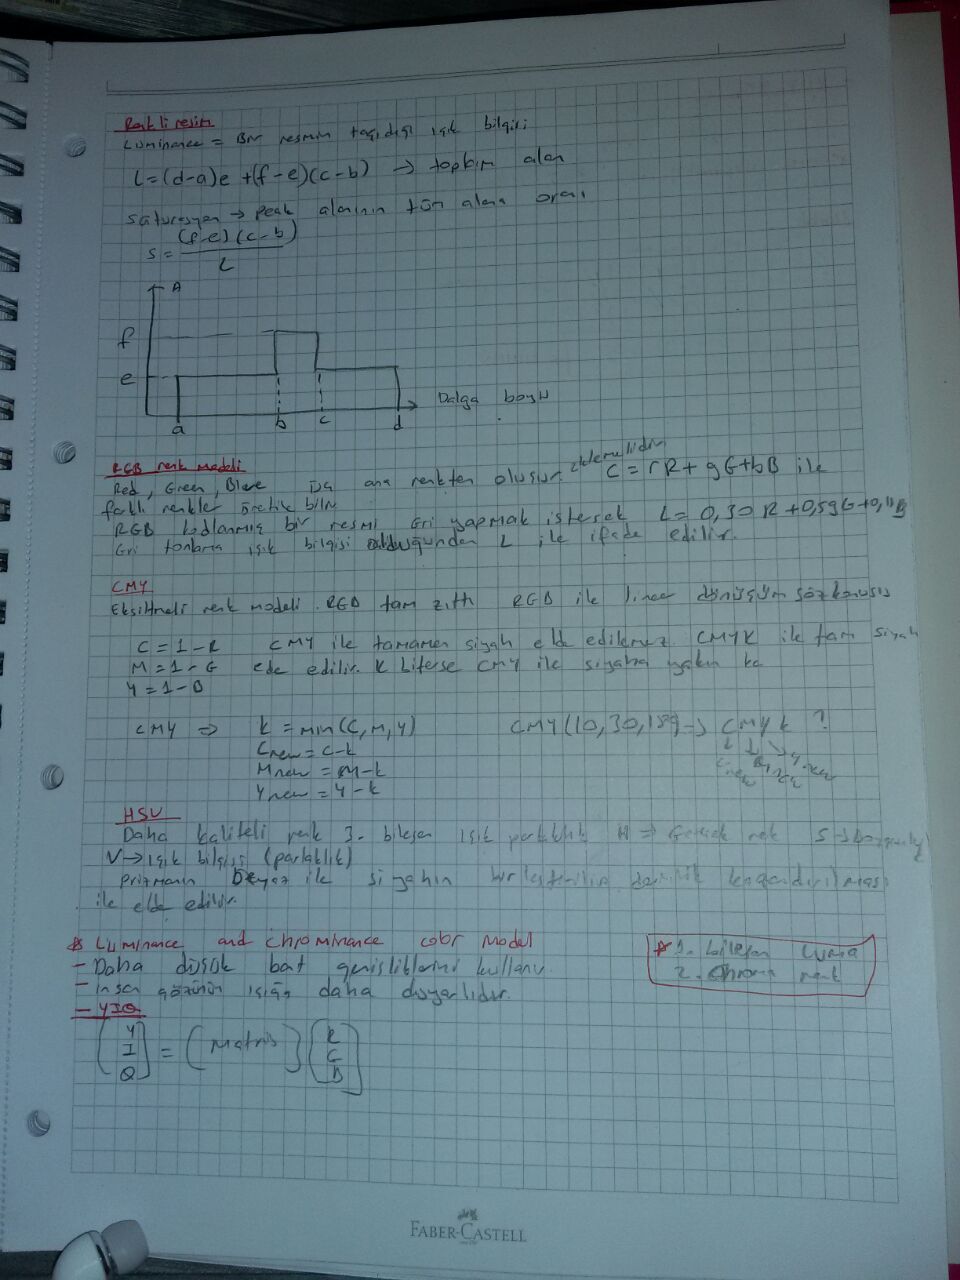 Renkli resim
Luminance = Bir resmin taşıdığı ışık bilgisi
L=(d-a)e +(f-e)(c-b) → toplam alan
saturasyon → peak alanının tüm alana oranı
S = (f-e)(c-b)
L
A
f
e
a b c d
Dalga boyu
RGB renk modeli
Red, Green, Blue üç ana renkten oluşur. eklemelidir C = rR + gG + bB ile
farklı renkler üretilebilir
RGB kodlanmış bir resmi Gri yapmak istersek L = 0,30R + 0,59G + 0,11B
Gri tonlama ışık bilgisi olduğundan L ile ifade edilir.
CMY
Eksiltmeli renk modeli. RGB tam zıttı RGB ile lineer dönüşüm söz konusu
C = 1-R CMY ile tamamen siyah elde edilemez. CMYK ile tam siyah
M = 1-G elde edilir. K biterse CMY ile siyaha yakın
Y = 1-B
CMY ⇒ k = min(C, M, Y) CMY(10, 30, → CMYK ?
Cnew = C-k
Mnew = M-k
Ynew = Y-k
HSV
Daha kaliteli renk 3. bileşen ışık H ⇒ Gerçek renk S →
V → ışık bilgisi (parlaklık)
Prizmanın beyaz ile siyahın
ile elde edilir.
* Luminance and chrominance color model
- Daha düşük bant genişliklerini kullanır.
- insan gözünün ışığa daha duyarlıdır.
* 1. bileşen Luma
2. Chroma renk
- YIQ
Y
I = (Matris)
Q
R
G
B
FABER-CASTELL